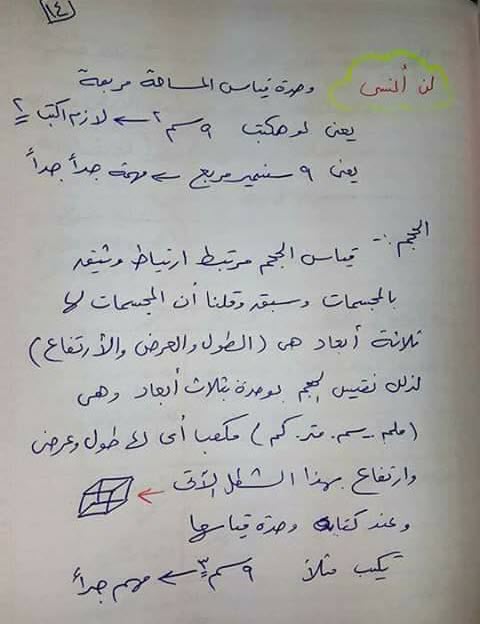 ١٤
لن أنسى وحدة قياس المساحة مربعة
يعنى لو هكتب ٩ سم٢ ← لازم اكتب ٢
يعنى ٩ سنتيمتر مربع ← مهمة جداً جداً
الحجم :-
قياس الحجم مرتبط ارتباط وثيق
بالمجسمات وسبق وقلنا أن المجسمات لها
ثلاثة أبعاد هى (الطول والعرض والأرتفاع)
لذلك نقيس الحجم بوحدة بثلاث أبعاد وهى
(ملم . سم . متر . كم) مكعبا أى لها طول وعرض
وارتفاع بهذا الشكل الآتى ←
وعند كتابة وحدة قياسها
تكتب مثلاً ٩ سم٣ ← مهم جداً